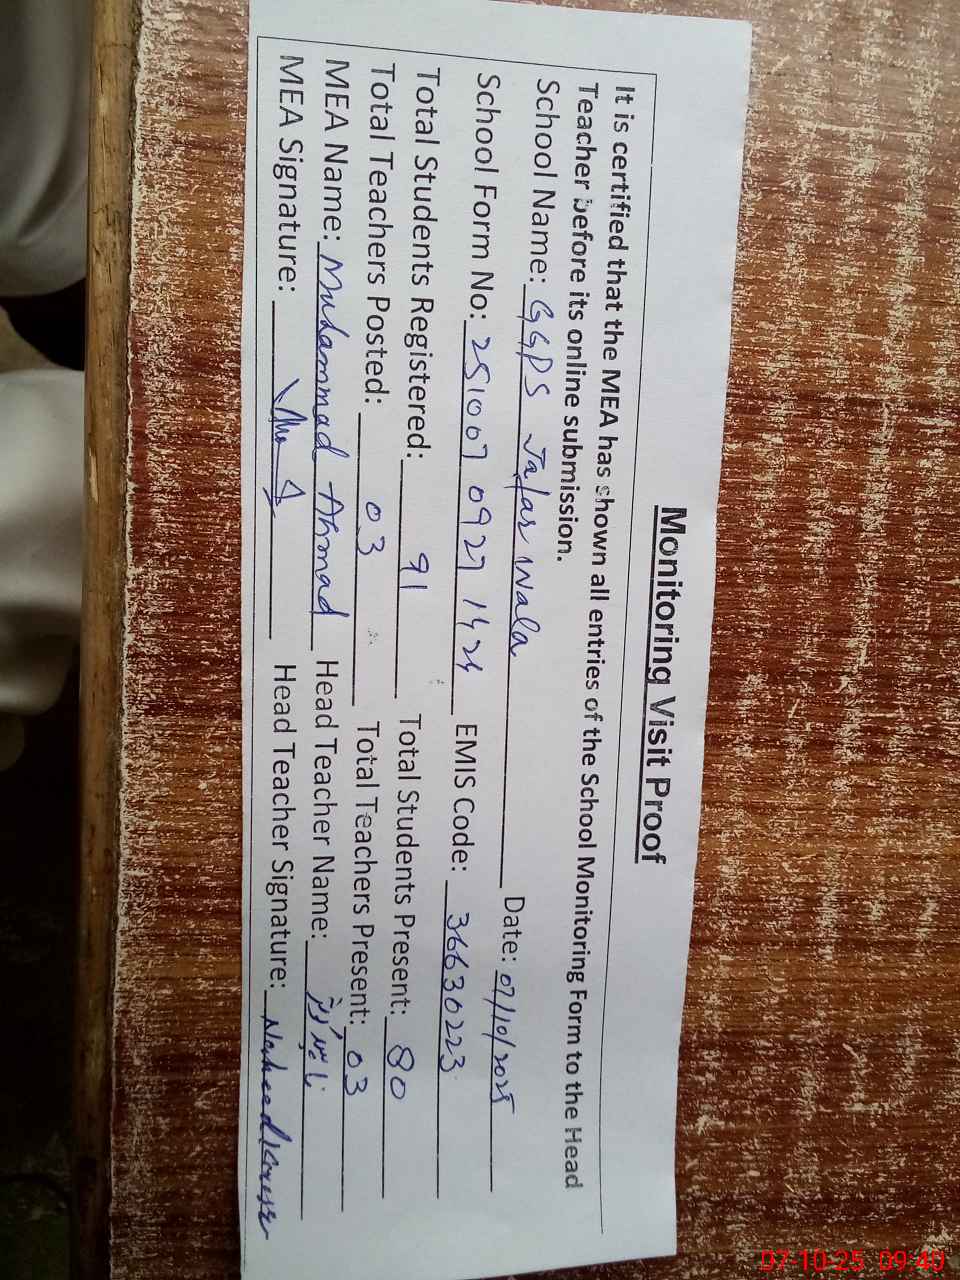 Monitoring Visit Proof
It is certified that the MEA has shown all entries of the School Monitoring Form to the Head
Teacher before its online submission.
School Name: GGPS Jafar Wala Date: 07/10/2025
School Form No: 251007 0927 1424 EMIS Code: 36630223
Total Students Registered: 91 Total Students Present: 80
Total Teachers Posted: 03 Total Teachers Present: 03
MEA Name: Muhammad Ahmad Head Teacher Name:
MEA Signature: Head Teacher Signature: Naheed
07-10-25 09:40